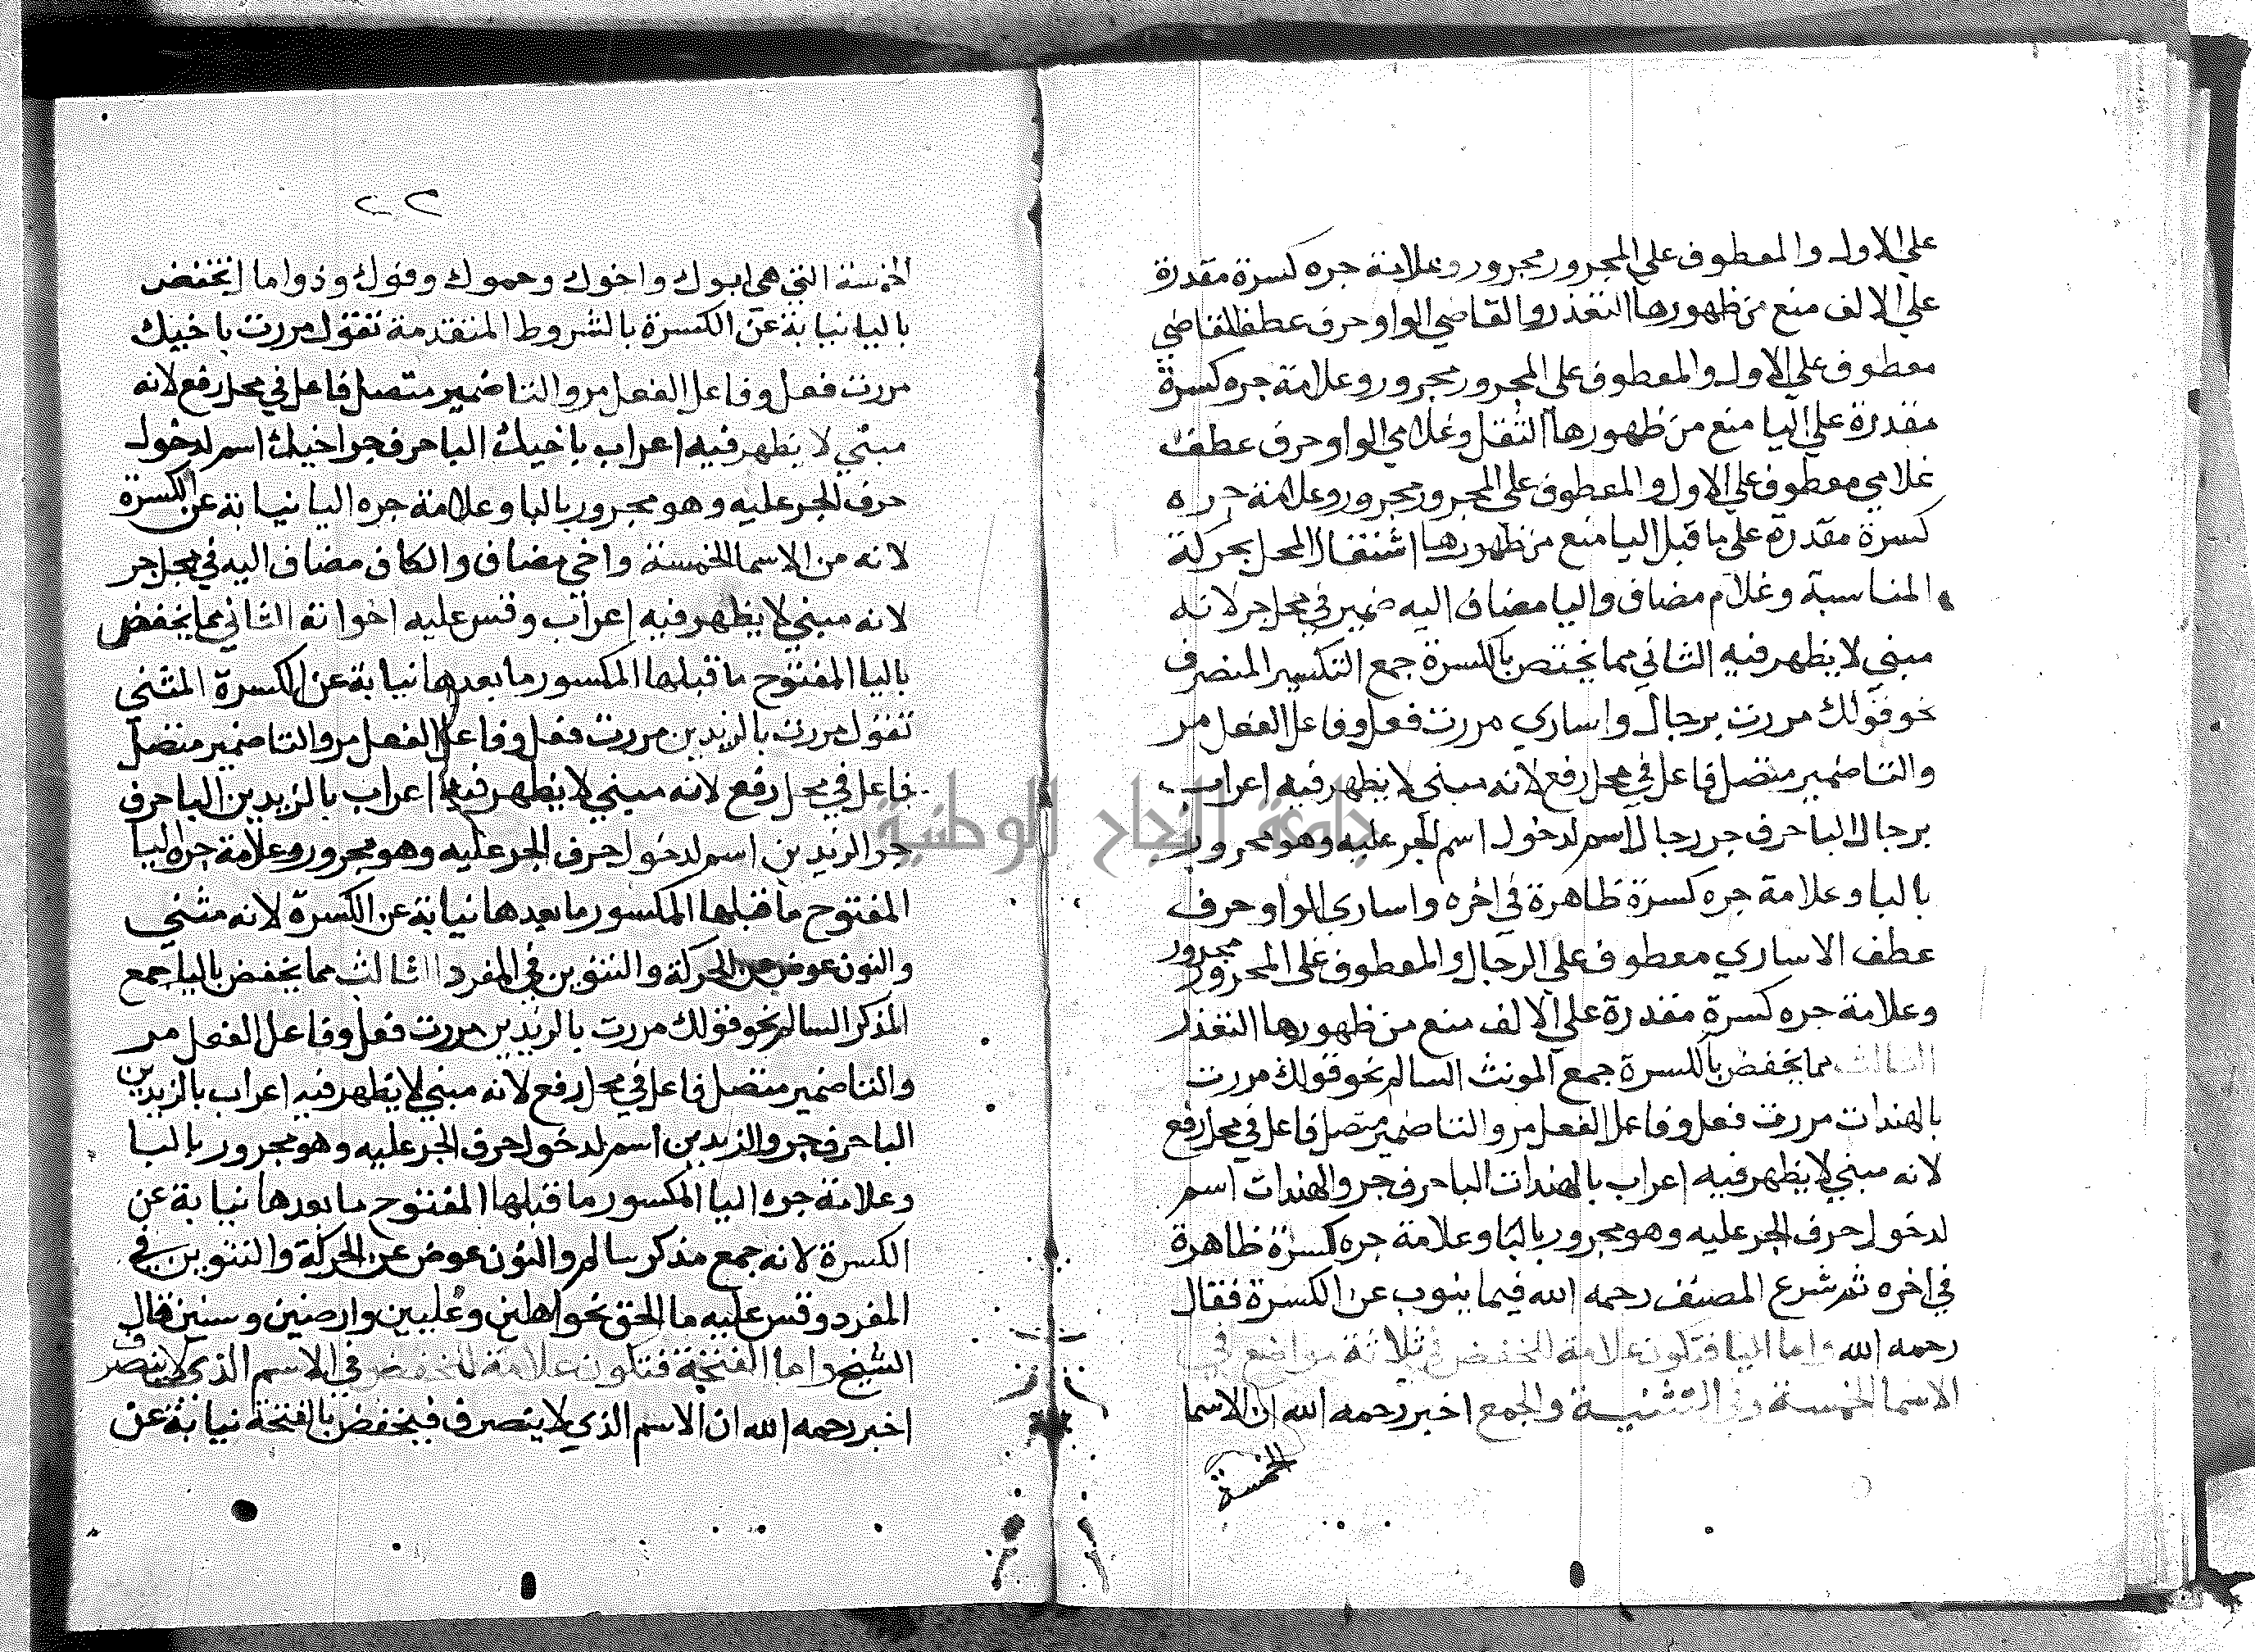 على الاول والمعطوف على المجرور مجرور وعلامة جره كسرة مقدرة
على الالف منع من ظهورها التعذر والقاضي الواو حرف عطف القاضي
معطوف على الاول والمعطوف على المجرور مجرور وعلامة جره كسرة
مقدرة على اليا منع من ظهورها الثقل وغلامي الواو حرف عطف
غلامي معطوف على الاول والمعطوف على المجرور مجرور وعلامة جره
كسرة مقدرة على ما قبل اليا منع من ظهورها اشتغال المحل بحركة
المناسبة وغلام مضاف واليا مضاف اليه ضمير في محل جر لانه
مبني لا يظهر فيه الثاني مما يختص بالكسرة جمع التكسير المنصرف
نحو قولك مررت برجال واساري مررت فعل وفاعل الفعل مر
والتا ضمير متصل فاعل في محل رفع لانه مبني لا يظهر فيه اعراب
برجال البا حرف جر رجال اسم لدخول اسم الجر عليه وهو مجرور
بالبا وعلامة جره كسرة ظاهرة في اخره واساري الواو حرف
عطف الاساري معطوف على الرجال والمعطوف على المجرور مجرور
وعلامة جره كسرة مقدرة على الالف منع من ظهورها التعذر
الثالث مما يخفض بالكسرة جمع المونث السالم نحو قولك مررت
بالهندات مررت فعل وفاعل الفعل مر والتا ضمير متصل فاعل في محل رفع
لانه مبني لا يظهر فيه اعراب بالهندات البا حرف جر والهندات اسم
لدخول حرف الجر عليه وهو مجرور بالبا وعلامة جره كسرة ظاهرة
في اخره ثم شرع المصنف رحمه الله فيما ينوب عن الكسرة فقال
رحمه الله واما اليا فتكون علامة الخفض في ثلاثة مواضع في
الاسما الخمسة وفي التثنية والجمع اخبر رحمه الله ان الاسما
الخمسة
٢٢
الخمسة التي هي ابوك واخوك وحموك وفوك وذو اما انخفض
باليا نيابة عن الكسرة بالشروط المتقدمة تقول مررت باخيك
مررت فعل وفاعل الفعل مر والتا ضمير متصل فاعل في محل رفع لانه
مبني لا يظهر فيه اعراب باخيك البا حرف جر اخيك اسم لدخول
حرف الجر عليه وهو مجرور بالبا وعلامة جره اليا نيابة عن الكسرة
لانه من الاسما الخمسة واخي مضاف والكاف مضاف اليه في محل جر
لانه مبني لا يظهر فيه اعراب وقس عليه اخواته الثاني مما يخفض
باليا المفتوح ما قبلها المكسور ما بعدها نيابة عن الكسرة المثنى
تقول مررت بالزيدين مررت فعل وفاعل الفعل مر والتا ضمير متصل
فاعل في محل رفع لانه مبني لا يظهر فيه اعراب بالزيدين البا حرف
جر الزيدين اسم لدخول حرف الجر عليه وهو مجرور وعلامة جره اليا
المفتوح ما قبلها المكسور ما بعدها نيابة عن الكسرة لانه مثنى
والنون عوض عن الحركة والتنوين في المفرد الثالث مما يخفض باليا جمع
المذكر السالم نحو قولك مررت بالزيدين مررت فعل وفاعل الفعل مر
والتا ضمير متصل فاعل في محل رفع لانه مبني لا يظهر فيه اعراب بالزيدين
البا حرف جر والزيدين اسم لدخول حرف الجر عليه وهو مجرور بالبا
وعلامة جره اليا المكسور ما قبلها المفتوح ما بعدها نيابة عن
الكسرة لانه جمع مذكر سالم والنون عوض عن الحركة والتنوين في
المفرد وقس عليه ما الحق نحو اهلين وعليين وارضين وسنين قال
الشيخ واما الفتحة فتكون علامة للخفض في الاسم الذي لا ينصرف
اخبر رحمه الله ان الاسم الذي لا ينصرف فيخفض بالفتحة نيابة عن
جامعة النجاح الوطنية